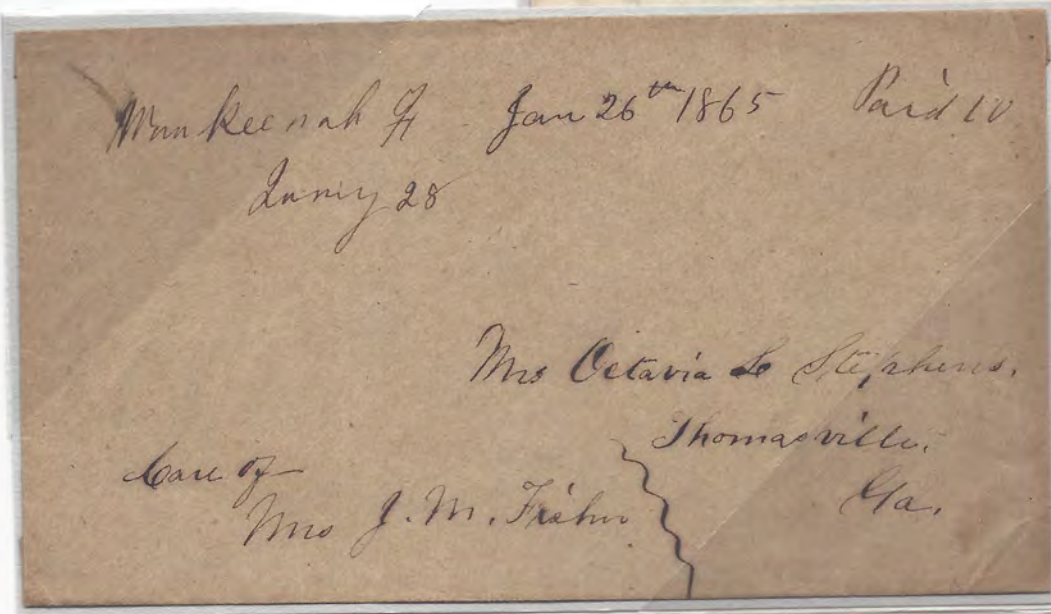 Waukeenah Fl Jan 26th 1865 Paid 10
28
Mrs Octavia Stephens.
Thomasville.
Care of
Ga.
Mrs J. M. Fisher